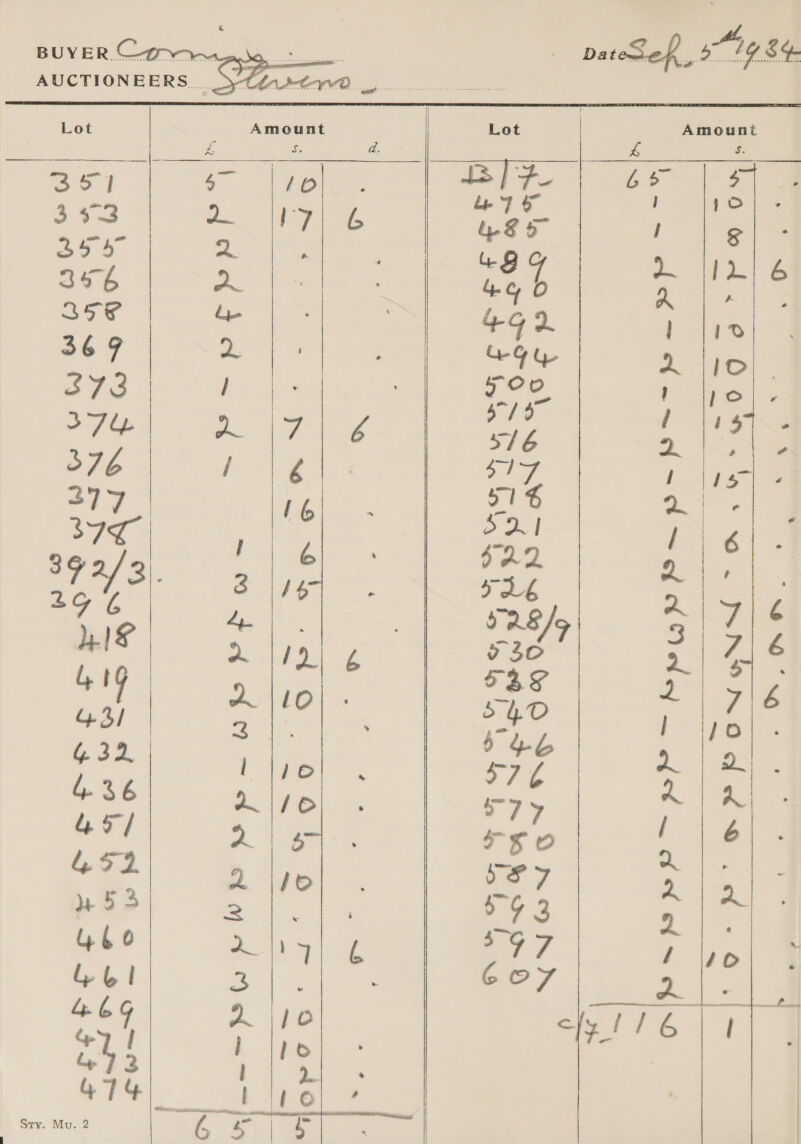 BUYER
AUCTIONEERS
Date 5th 1934
Lot Amount
£ s. d.
351 5 10 .
353 2 17 6
355 2 . .
356 2 . .
358 4 . .
369 2 . .
373 1 . .
374 2 7 6
376 1 6 .
377 16 .
378 1 6 .
392/3. 3 15 .
396 4 . .
418 2 12 6
419 2 10 .
431 3 . .
432 1 10 .
436 2 10 .
451 2 5 .
452 2 10 .
453 3 . .
460 2 17 6
461 3 . .
469 2 10
471 1 10 .
473 1 2 .
474 1 10 .
65 5 .
Lot Amount
£ s.
B/F 65 5 .
475 1 10 .
485 1 8 .
489 2 12 6
490 2 . .
492 1 10
494 2 10 .
500 1 10 .
515 1 15 .
516 2 . .
517 1 15 .
518 2 . .
521 1 6 .
522 2 . .
526 2 7 6
528/9 3 7 6
530 2 5 .
538 2 7 6
540 1 10 .
546 2 2 .
576 2 2 .
577 1 6 .
580 2 . .
587 2 2 .
593 2 .
597 1 10 .
607 2 . .
c/f 116 1 .
Sty. Mu. 2